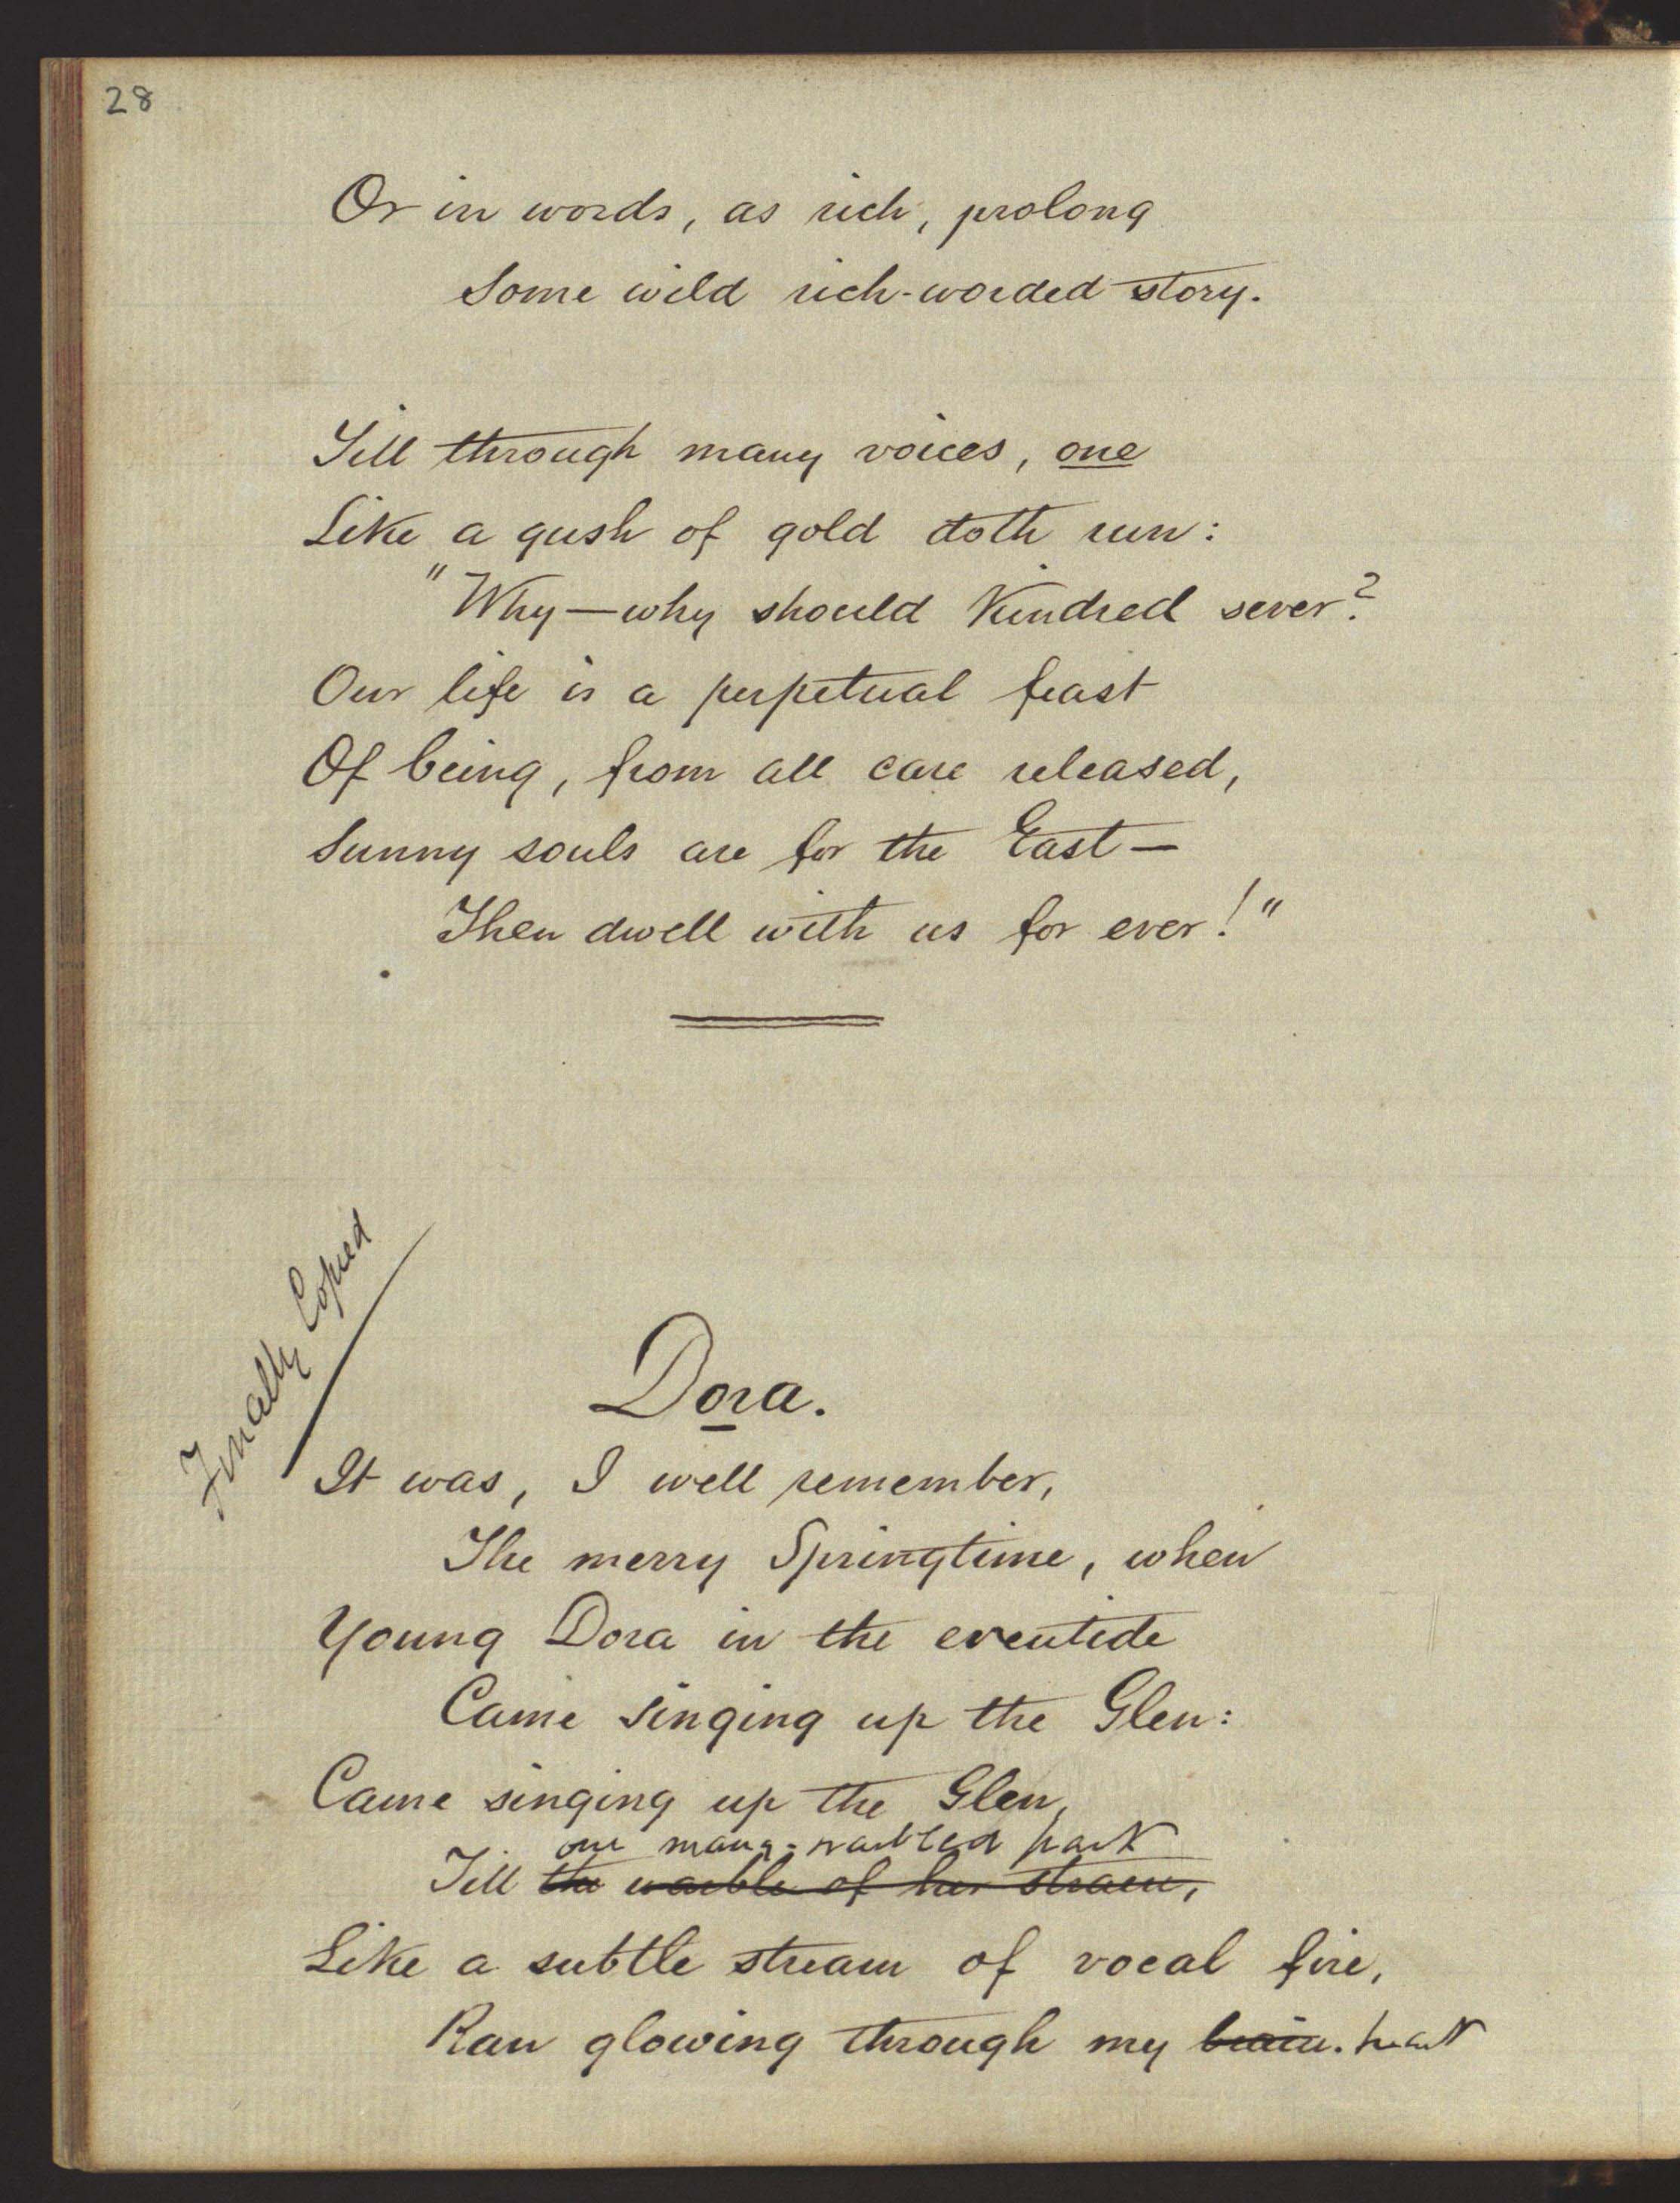 28
Or in words, as rich, prolong
Some wild rich-worded story.
Till through many voices, one
Like a gush of gold doth run:
"Why—why should kindred sever?
Our life is a perpetual feast
Of being, from all care released,
Sunny souls are for the East—
Then dwell with us for ever!"
Finally Copied
Dora.
It was, I well remember,
The merry Springtime, when
Young Dora in the eventide
Came singing up the Glen:
Came singing up the Glen,
one many-warbled part
Till the warble of her strain,
Like a subtle stream of vocal fire,
Ran glowing through my brain. heart